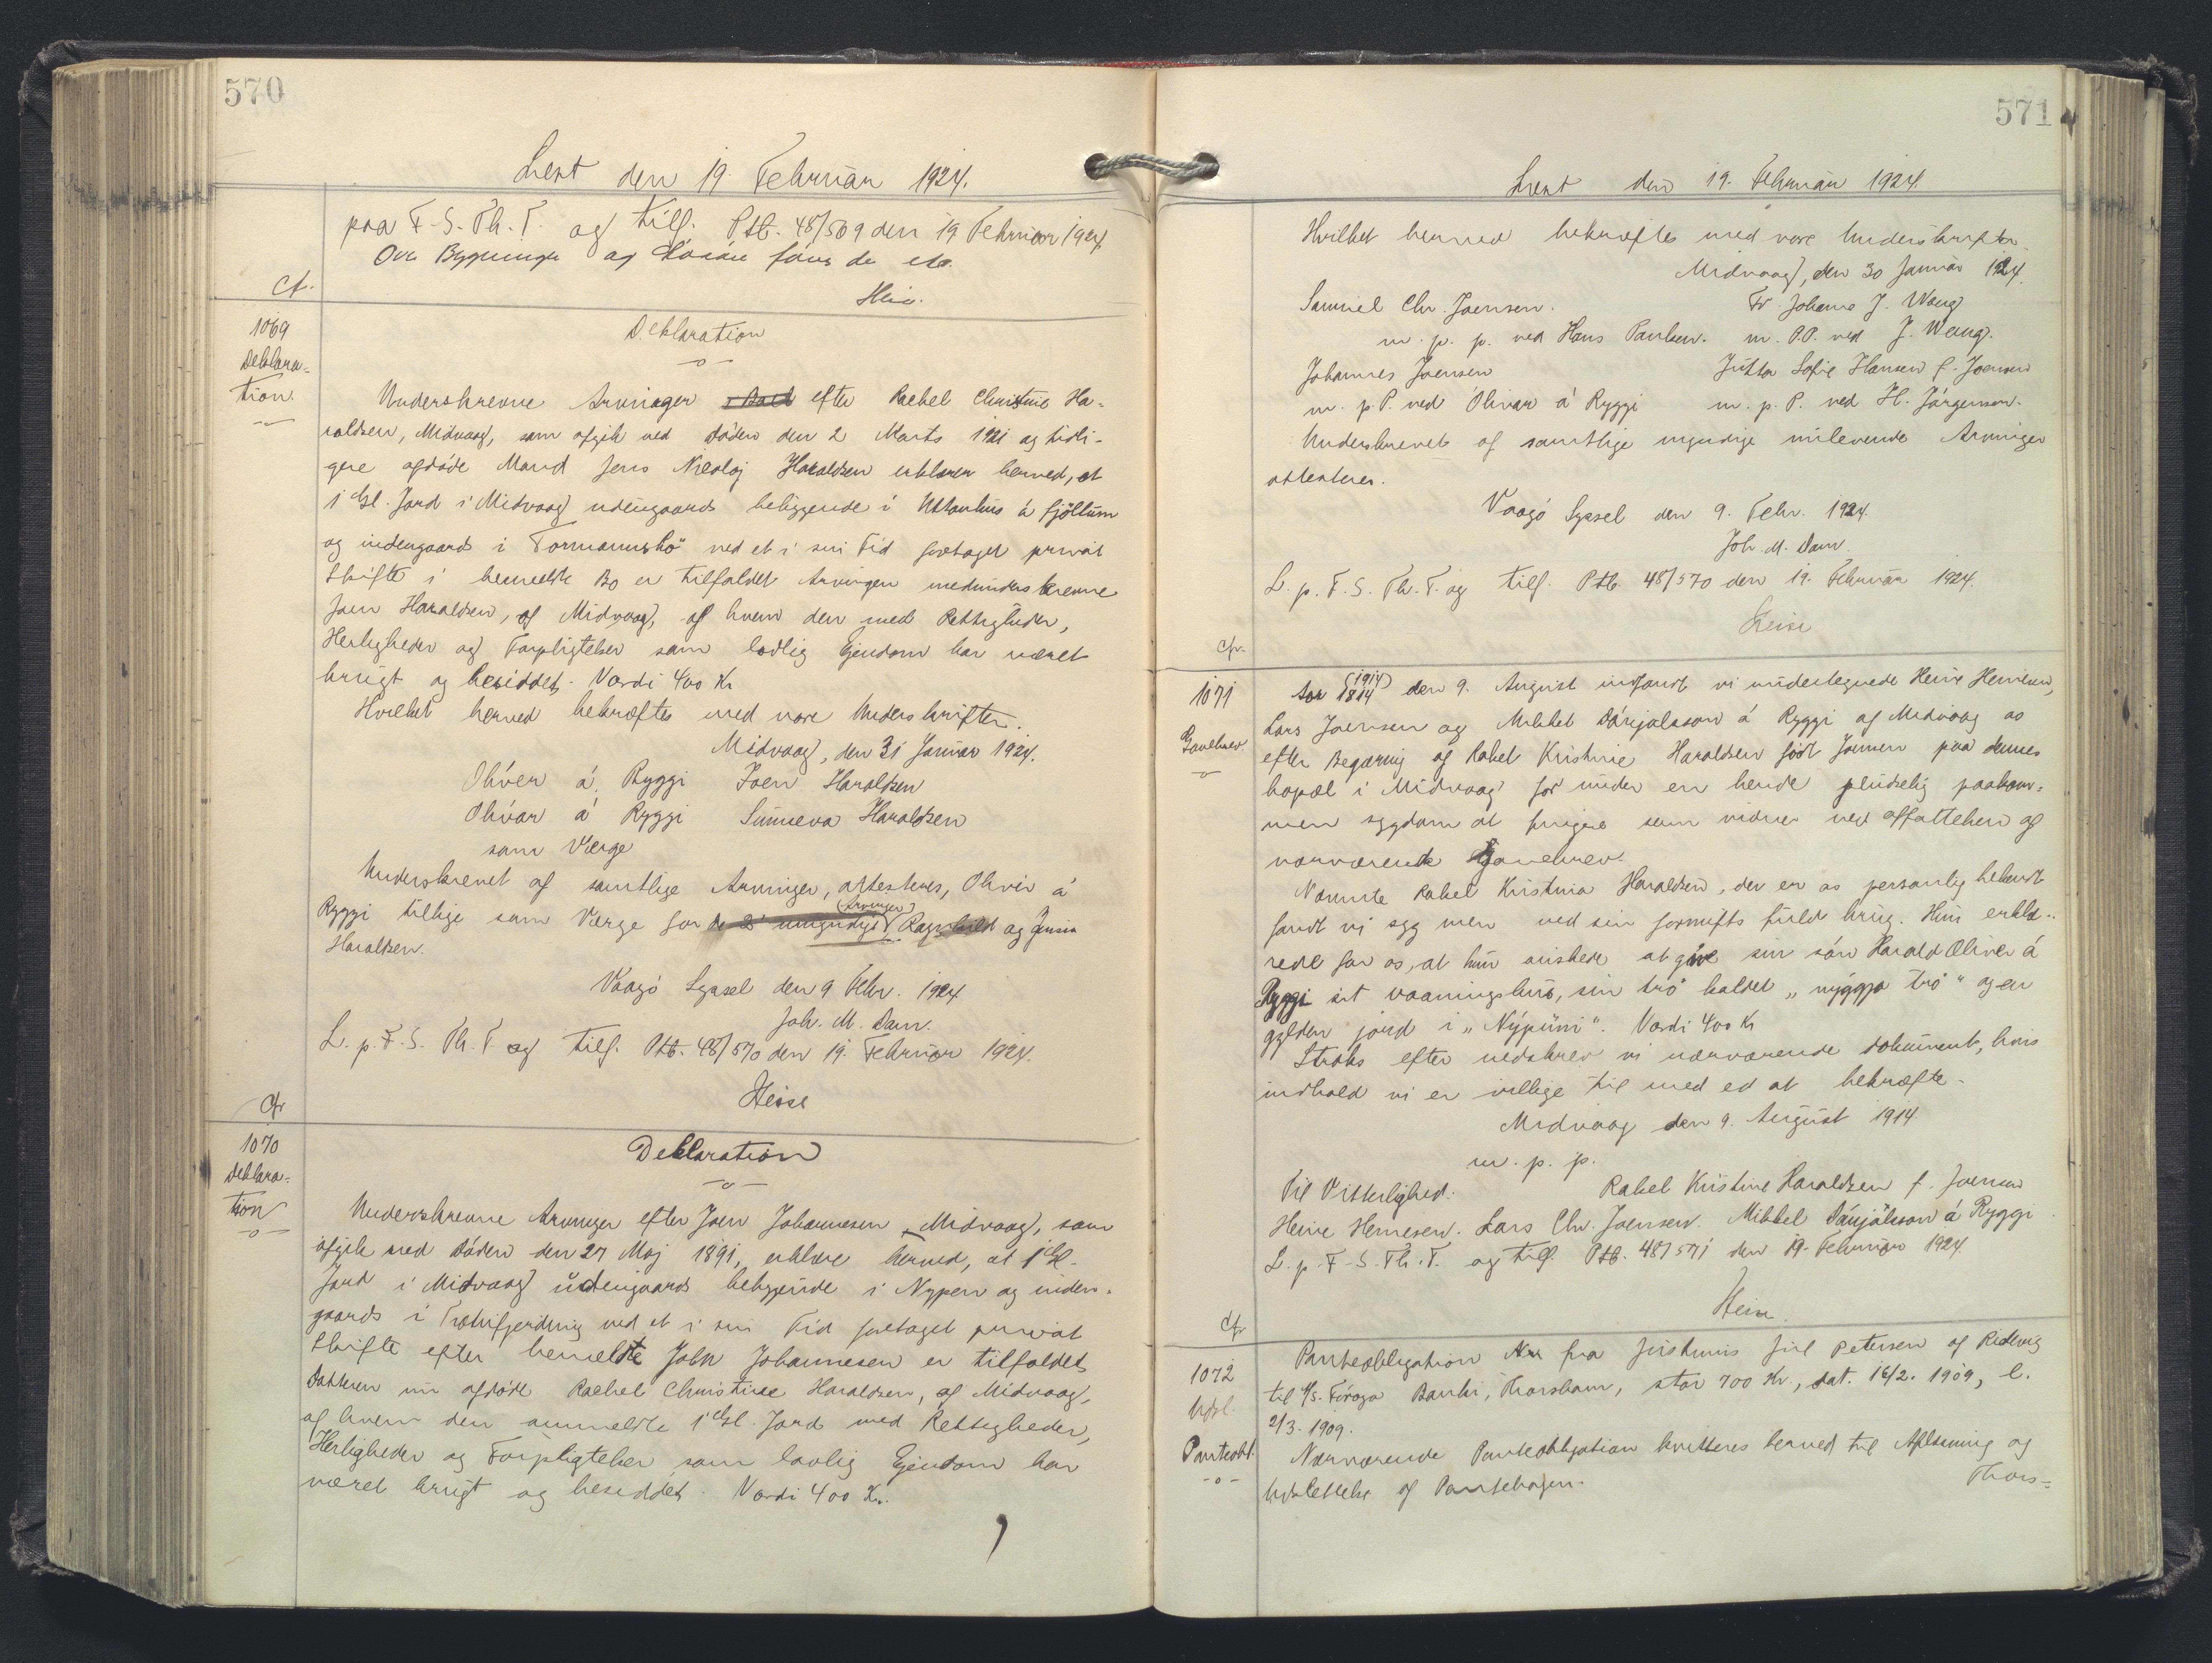 570
Læst den 19. Februar 1924.
paa F.S. Th. T. og tilf. Ptb. 48/569 den 19 Februar 1924
Ovr. Bygninger og
Heise.
Cf.
1069
Deklara-
tion.
Deklaration
Underskrevne Arvinger i Boet efter Rachel Christine Ha-
raldsen, Midvaag, som afgik ved Døden den 2 Marts 1921 og tidli-
gere afdøde Mand Jens Nicolaj Haraldsen erklærer herved, at
1 Gl. Jord i Midvaag udengaards beliggende i Uttanhus á fjøllum
og indengaards i Tormansbø ved et i sin Tid foretaget privat
Skifte i bemeldte Bo er tilfaldet Arvingen medunderskrevne
Joen Haraldsen, af Midvaag, af hvem den med Rettigheder,
Herligheder og Forpligtelser som lovlig Ejendom har været
brugt og besiddet. Værdi 400 Kr
Hvilket herved bekræftes med vore Underskrifter.
Midvaag, den 31 Januar 1924.
Olivur á Ryggi Joen Haraldsen
Olivur á Ryggi Sunneva Haraldsen
som Værge
Underskrevet af samtlige Arvinger, attesteres, Oliver á
Ryggi tillige som Værge for de 2 umyndige (Arvinger) Ragnhild og Jensia
Haraldsen.
Vaagø Syssel den 9 Febr. 1924
Joh. M. Dam.
L. p. F. S. Th. T. og tilf. Ptb. 48/570 den 19. Februar 1924.
Heise
Cfr
1070
Deklara-
tion
Deklaration
Underskrevne Arvinger efter Joen Johannesen, Midvaag, som
afgik ved Døden den 27 Maj 1891, erklære herved, at 1 Gl.
Jord i Midvaag udengaards beliggende i Nypen og inden-
gaards i Trøtnfjerding ved et i sin Tid foretaget privat
Skifte efter bemeldte John Johannesen er tilfaldet
Datteren nu afdøde Rachel Christine Haraldsen, af Midvaag,
af hvem den anmeldte 1 Gl. Jord med Rettigheder,
Herligheder og Forpligtelser som lovlig Ejendom har
været brugt og besiddet. Værdi 400 Kr.
571
Læst den 19. Februar 1924.
Hvilket herved bekræftes med vore Underskrifter.
Midvaag, den 30 Januar 1924.
Samuel Chr. Joensen. Fr. Johane J. Waag
m. p. p. ved Hans Paulsen. m. P.P. ved J. Waag.
Johannes Joensen Jutta Sofie Hansen f. Joensen
m. p. P. ved Ólivar á Ryggi m. p. P. ved H. Jørgensen.
Underskrevet af samtlige myndige nulevende Arvinger
attesteres.
Vaagø Syssel den 9. Febr. 1924.
Joh. M. Dam.
L. p. F. S. Th. T. og tilf. Ptb. 48/570 den 19. Februar 1924.
Heise
Cfr.
1071
Gavebrev
Aar 1814 (1914) den 9. August indfandt vi undertegnede Heine Heinesen,
Lars Joensen og Mikkel Dánjalsson á Ryggi af Midvaag os
efter Begæring af Rakel Kristine Haraldsen født Joensen paa dennes
bopæl i Midvaag for under en hende pludselig paakom-
men sygdom at fungere som vidner ved affattelsen af
nærværende Gavebrev.
Nævnte Rakel Kristina Haraldsen, der er os personlig bekendt
fandt vi syg men ved sin fornufts fuld brug. Hun erklæ-
rede for os, at hun ønskede at give sin søn Harald Oliver á
Ryggi sit vaaningshus, sin trø kaldet „nýggja trø" og en
gylden jord i „Nýpuni". Værdi 400 Kr
Straks efter nedskrev vi nærværende dokument, hvis
indhold vi er villige til med ed at bekræfte.
Midvaag den 9. August 1914
m. p. p.
Til Vitterlighed: Rakel Kristine Haraldsen f. Joensen
Heine Heinesen. Lars Chr. Joensen. Mikkel Dánjalsson á Ryggi
L. p. F. S. Th. T. og tilf. Ptb. 48/571 den 19. Februar 1924.
Heise
Cfr
1072
Udsl.
Panteobl.
Panteobligation fra Justinus Juel Petersen af Ridevig
til A/S. Føroya Banki, Thorshavn, stor 700 Kr., dat. 16/2. 1909, l.
2/3. 1909.
Nærværende Panteobligation kvitteres herved til Aflæsning og
Udslettelse af Pantebogen. Thors=